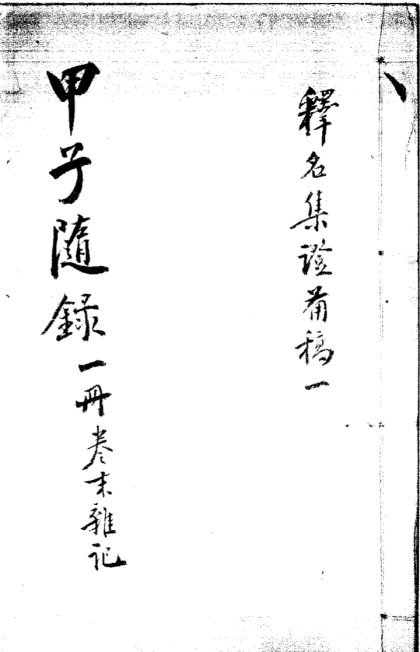 釋名集證備稿一
甲子隨録一冊卷末雜記